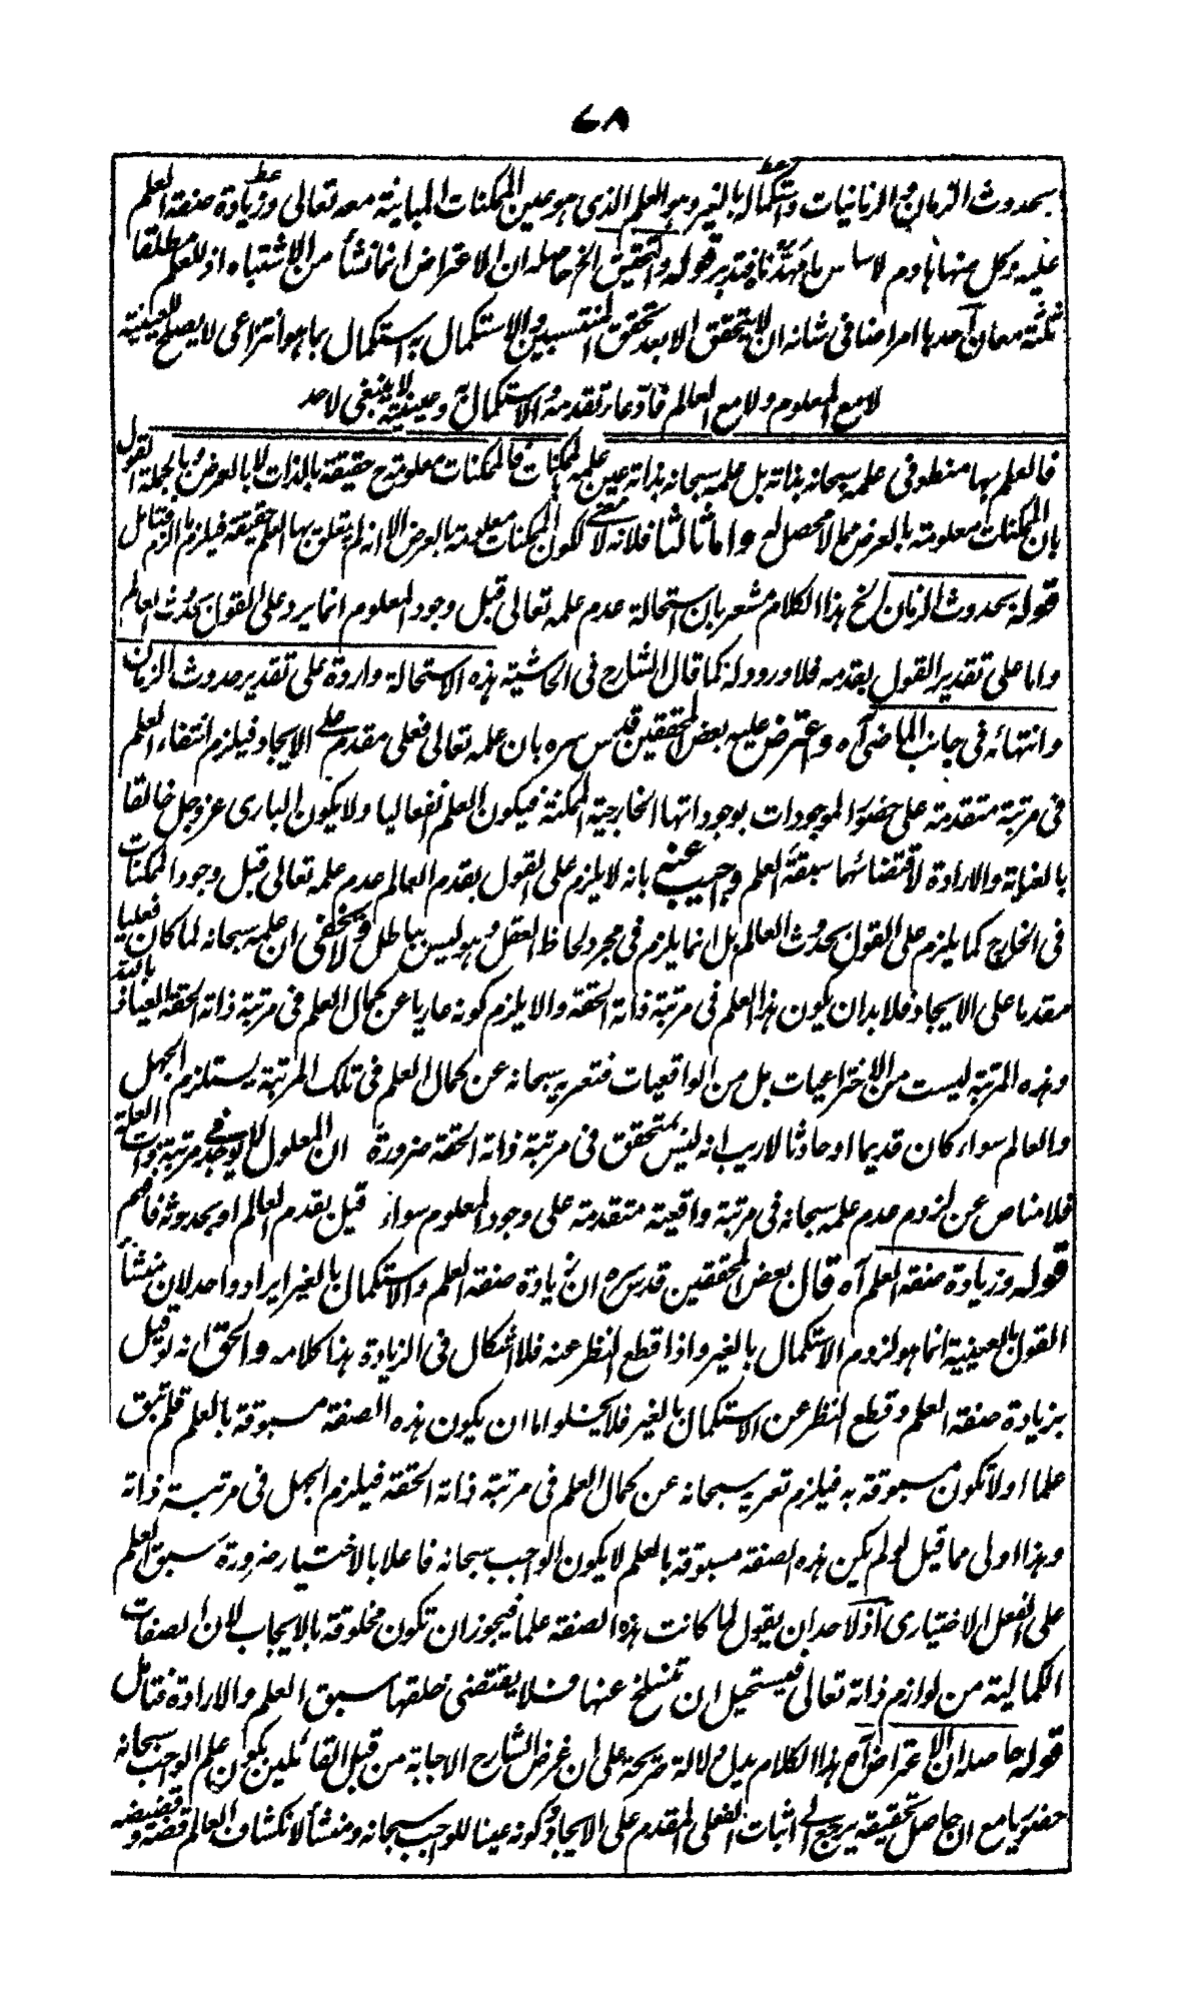 ٧٨
بحدوث الزمان والزمانيات واستكماله بالغير وهو العلم الذى هو عين الممكنات المباينة معه تعالى وزيادة صفة العلم
عليه وكل منها هادم لاساس ما مهدنا فتدبر قوله والتحقيق الخ حاصله ان الاعتراض انما نشأ من الاشتباه اذ للعلم مطلقا
ثلثة معان احدها امر اضافى شانه ان لا يتحقق الا بعد تحقق المنتسبين والاستكمال به استكمال بما هو انتزاعى لا يصلح للعينية
لا مع المعلوم ولا مع العالم فادعاء تقدمه والاستكمال به وعينيته لا ينبغى لاحد
فالعلم بها منطو فى علمه سبحانه بذاته بل علمه سبحانه بذاته عين علمه بالممكنات فالممكنات معلومة ح حقيقة بالذات لا بالعرض وبالجملة القول
بان الممكنات معلومة بالعرض مما لا محصل له واما ثالثا فلانه لا معنى لكون الممكنات معلومة بالعرض الا انه لم يتعلق بها العلم حقيقة فيلزم ما لزم فتامل
قوله بحدوث الزمان الخ هذا الكلام مشعر بان استحالة عدم علمه تعالى قبل وجود المعلوم انما يرد على القول بحدوث العالم
واما على تقدير القول بقدمه فلا ورود له كما قال الشارح فى الحاشية هذه الاستحالة واردة على تقدير حدوث الزمان
وانتهائه فى جانب الماضى آه واعترض عليه بعض المحققين قدس سره بان علمه تعالى فعلى مقدم على الايجاد فيلزم انتفاء العلم
فى مرتبة متقدمة على حضور الموجودات بوجوداتها الخارجية الممكنة فيكون العلم انفعاليا ولا يكون البارى عز وجل خالقا
بالعناية والارادة لاقتضائهما سبقة العلم واجيب عنه بانه لا يلزم على القول بقدم العالم عدم علمه تعالى قبل وجود الممكنات
فى الخارج كما يلزم على القول بحدوث العالم بل انما يلزم فى مجرد لحاظ العقل وهو ليس بباطل ولا يخفى ان علمه سبحانه لما كان فعليا
مقدما على الايجاد فلا بد ان يكون هذا العلم فى مرتبة ذاته الحقة والا يلزم كونه عاريا عن كمال العلم فى مرتبة ذاته الحقة العياذ بالله
وهذه المرتبة ليست من الاختراعيات بل من الواقعيات فتعريه سبحانه عن كمال العلم فى تلك المرتبة يستلزم الجهل
والعالم سواء كان قديما او حادثا لا ريب انه ليس بمتحقق فى مرتبة ذاته الحقة ضرورة ان المعلول لا يوجد فى مرتبة ذات العلة
فلا مناص عن لزوم عدم علمه سبحانه فى مرتبة واقعية متقدمة على وجود المعلوم سواء قيل بقدم العالم او بحدوثه فافهم
قوله وزيادة صفة العلم آه قال بعض المحققين قدس سره ان زيادة صفة العلم والاستكمال بالغير ايراد واحد لان منشأ
القول بالعينية انما هو لزوم الاستكمال بالغير واذا قطع النظر عنه فلا اشكال فى الزيادة هذا كلامه والحق انه لو قيل
بزيادة صفة العلم وقطع النظر عن الاستكمال بالغير فلا يخلو اما ان يكون هذه الصفة مسبوقة بالعلم فلم تبق
علما او لا تكون مسبوقة به فيلزم تعريه سبحانه عن كمال العلم فى مرتبة ذاته الحقة فيلزم الجهل فى مرتبة ذاته
وهذا اولى مما قيل لو لم يكن هذه الصفة مسبوقة بالعلم لا يكون الواجب سبحانه فاعلا بالاختيار ضرورة سبق العلم
على الفعل الاختيارى اذ لاحد ان يقول لما كانت هذه الصفة علما فيجوز ان تكون مخلوقة بالايجاب لان الصفات
الكمالية من لوازم ذاته تعالى فيستحيل ان تنسلخ عنها فلا يقتضى خلقها سبق العلم والارادة فتامل
قوله حاصله ان الاعتراض آه هذا الكلام يدل دلالة صريحة على ان غرض الشارح الاجابة من قبل القائلين بكون علم الواجب سبحانه
حضوريا مع ان حاصل تحقيقه يرجع الى اثبات الفعلى المقدم على الايجاد وكونه عينا للواجب سبحانه ومنشأ لانكشاف العالم قضه وقضيضه